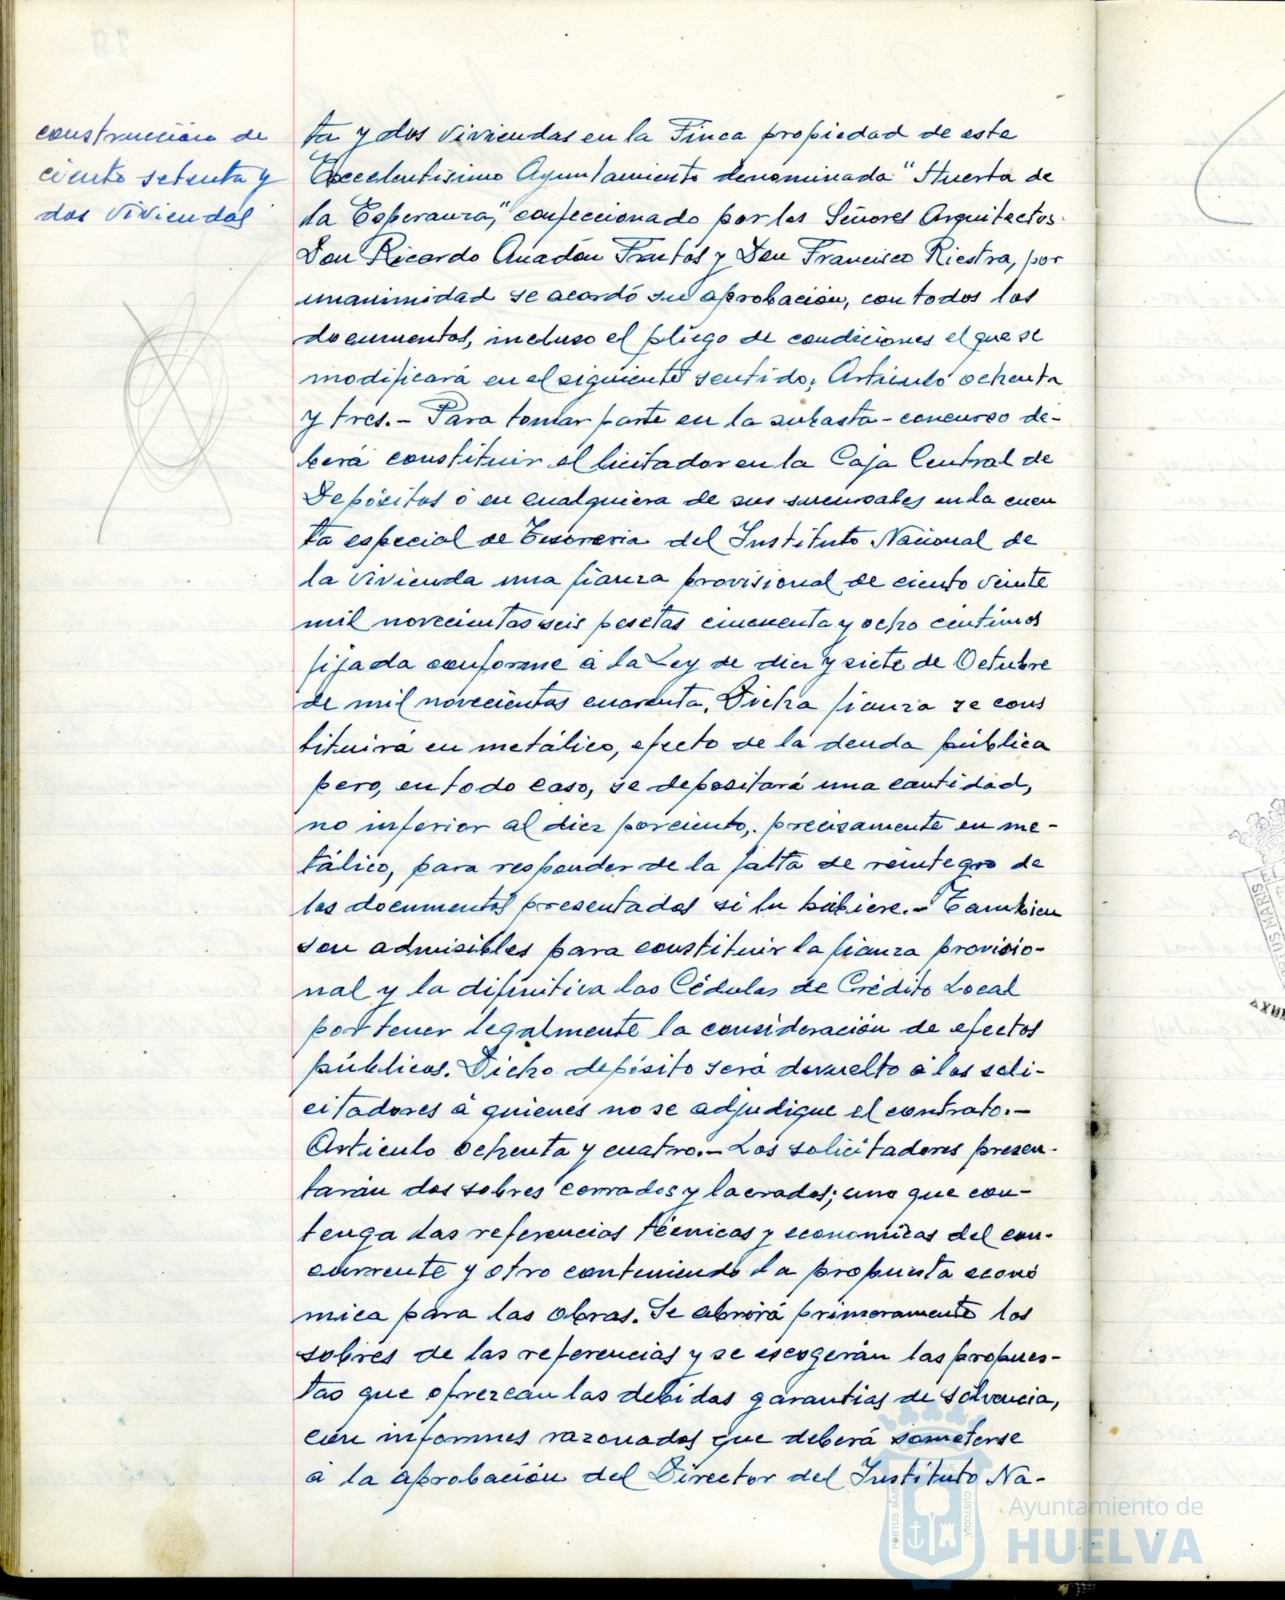 construcción de
ciento setenta y
dos viviendas
ta y dos viviendas en la Finca propiedad de este
Excelentisimo Ayuntamiento denominada "Huerta de
la Esperanza," confeccionado por los Señores Arquitectos
Don Ricardo Anadón Frutos y Don Francisco Riestra, por
unanimidad se acordó su aprobación, con todos los
documentos, incluso el pliego de condiciones el que se
modificará en el siguiente sentido, Articulo ochenta
y tres.- Para tomar parte en la subasta-concurso de-
berá constituir el licitador en la Caja Central de
Depósitos ó en cualquiera de sus sucursales en la cuen
ta especial de Tesoreria del Instituto Nacional de
la vivienda una fianza provisional de ciento veinte
mil novecientas seis pesetas cincuenta y ocho céntimos
fijada conforme á la Ley de diez y siete de Octubre
de mil novecientos cuarenta. Dicha fianza se cons
tituirá en metálico, efecto de la deuda pública
pero, en todo caso, se depositará una cantidad,
no inferior al diez por ciento, precisamente en me-
tálico, para responder de la falta de reintegro de
los documentos presentados si lu hubiere.- Tambien
son admisibles para constituir la fianza provisio-
nal y la difinitiva las Cédulas de Crédito Local
por tener legalmente la consideración de efectos
públicos. Dicho depósito será devuelto á los soli-
citadores á quienes no se adjudique el contrato.-
Articulo ochenta y cuatro.- Los solicitadores presen-
tarán dos sobres cerrados y lacrados; uno que con-
tenga las referencias técnicas y economicas del con-
currente y otro conteniendo la propuesta econó
mica para las obras. Se abrirá primeramente los
sobres de las referencias y se escogerán las propues-
tas que ofrezcan las debidas garantias de solvencia,
con informes razonados que deberá someterse
á la aprobación del Director del Instituto Na-
Ayuntamiento de
HUELVA
PORTUS MARIS
CUSTODIA